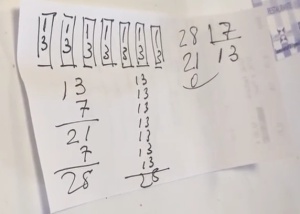 13 13 13 13 13 13 13
28 7
21 13
0
13
7
21
7
28
13
13
13
13
13
13
13
28